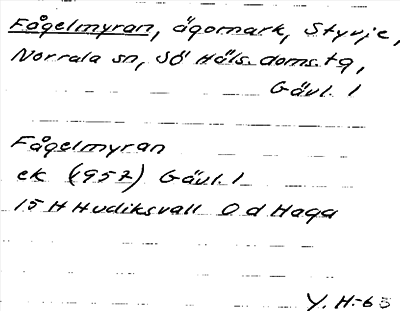 Fågelmyran, ägomark, Styvje,
Norrala sn, Sö Häls. doms.tg,
Gävl. l
Fågelmyran
ek (1957) Gävl. l
15 H Hudiksvall O d Haga
Y. H-63